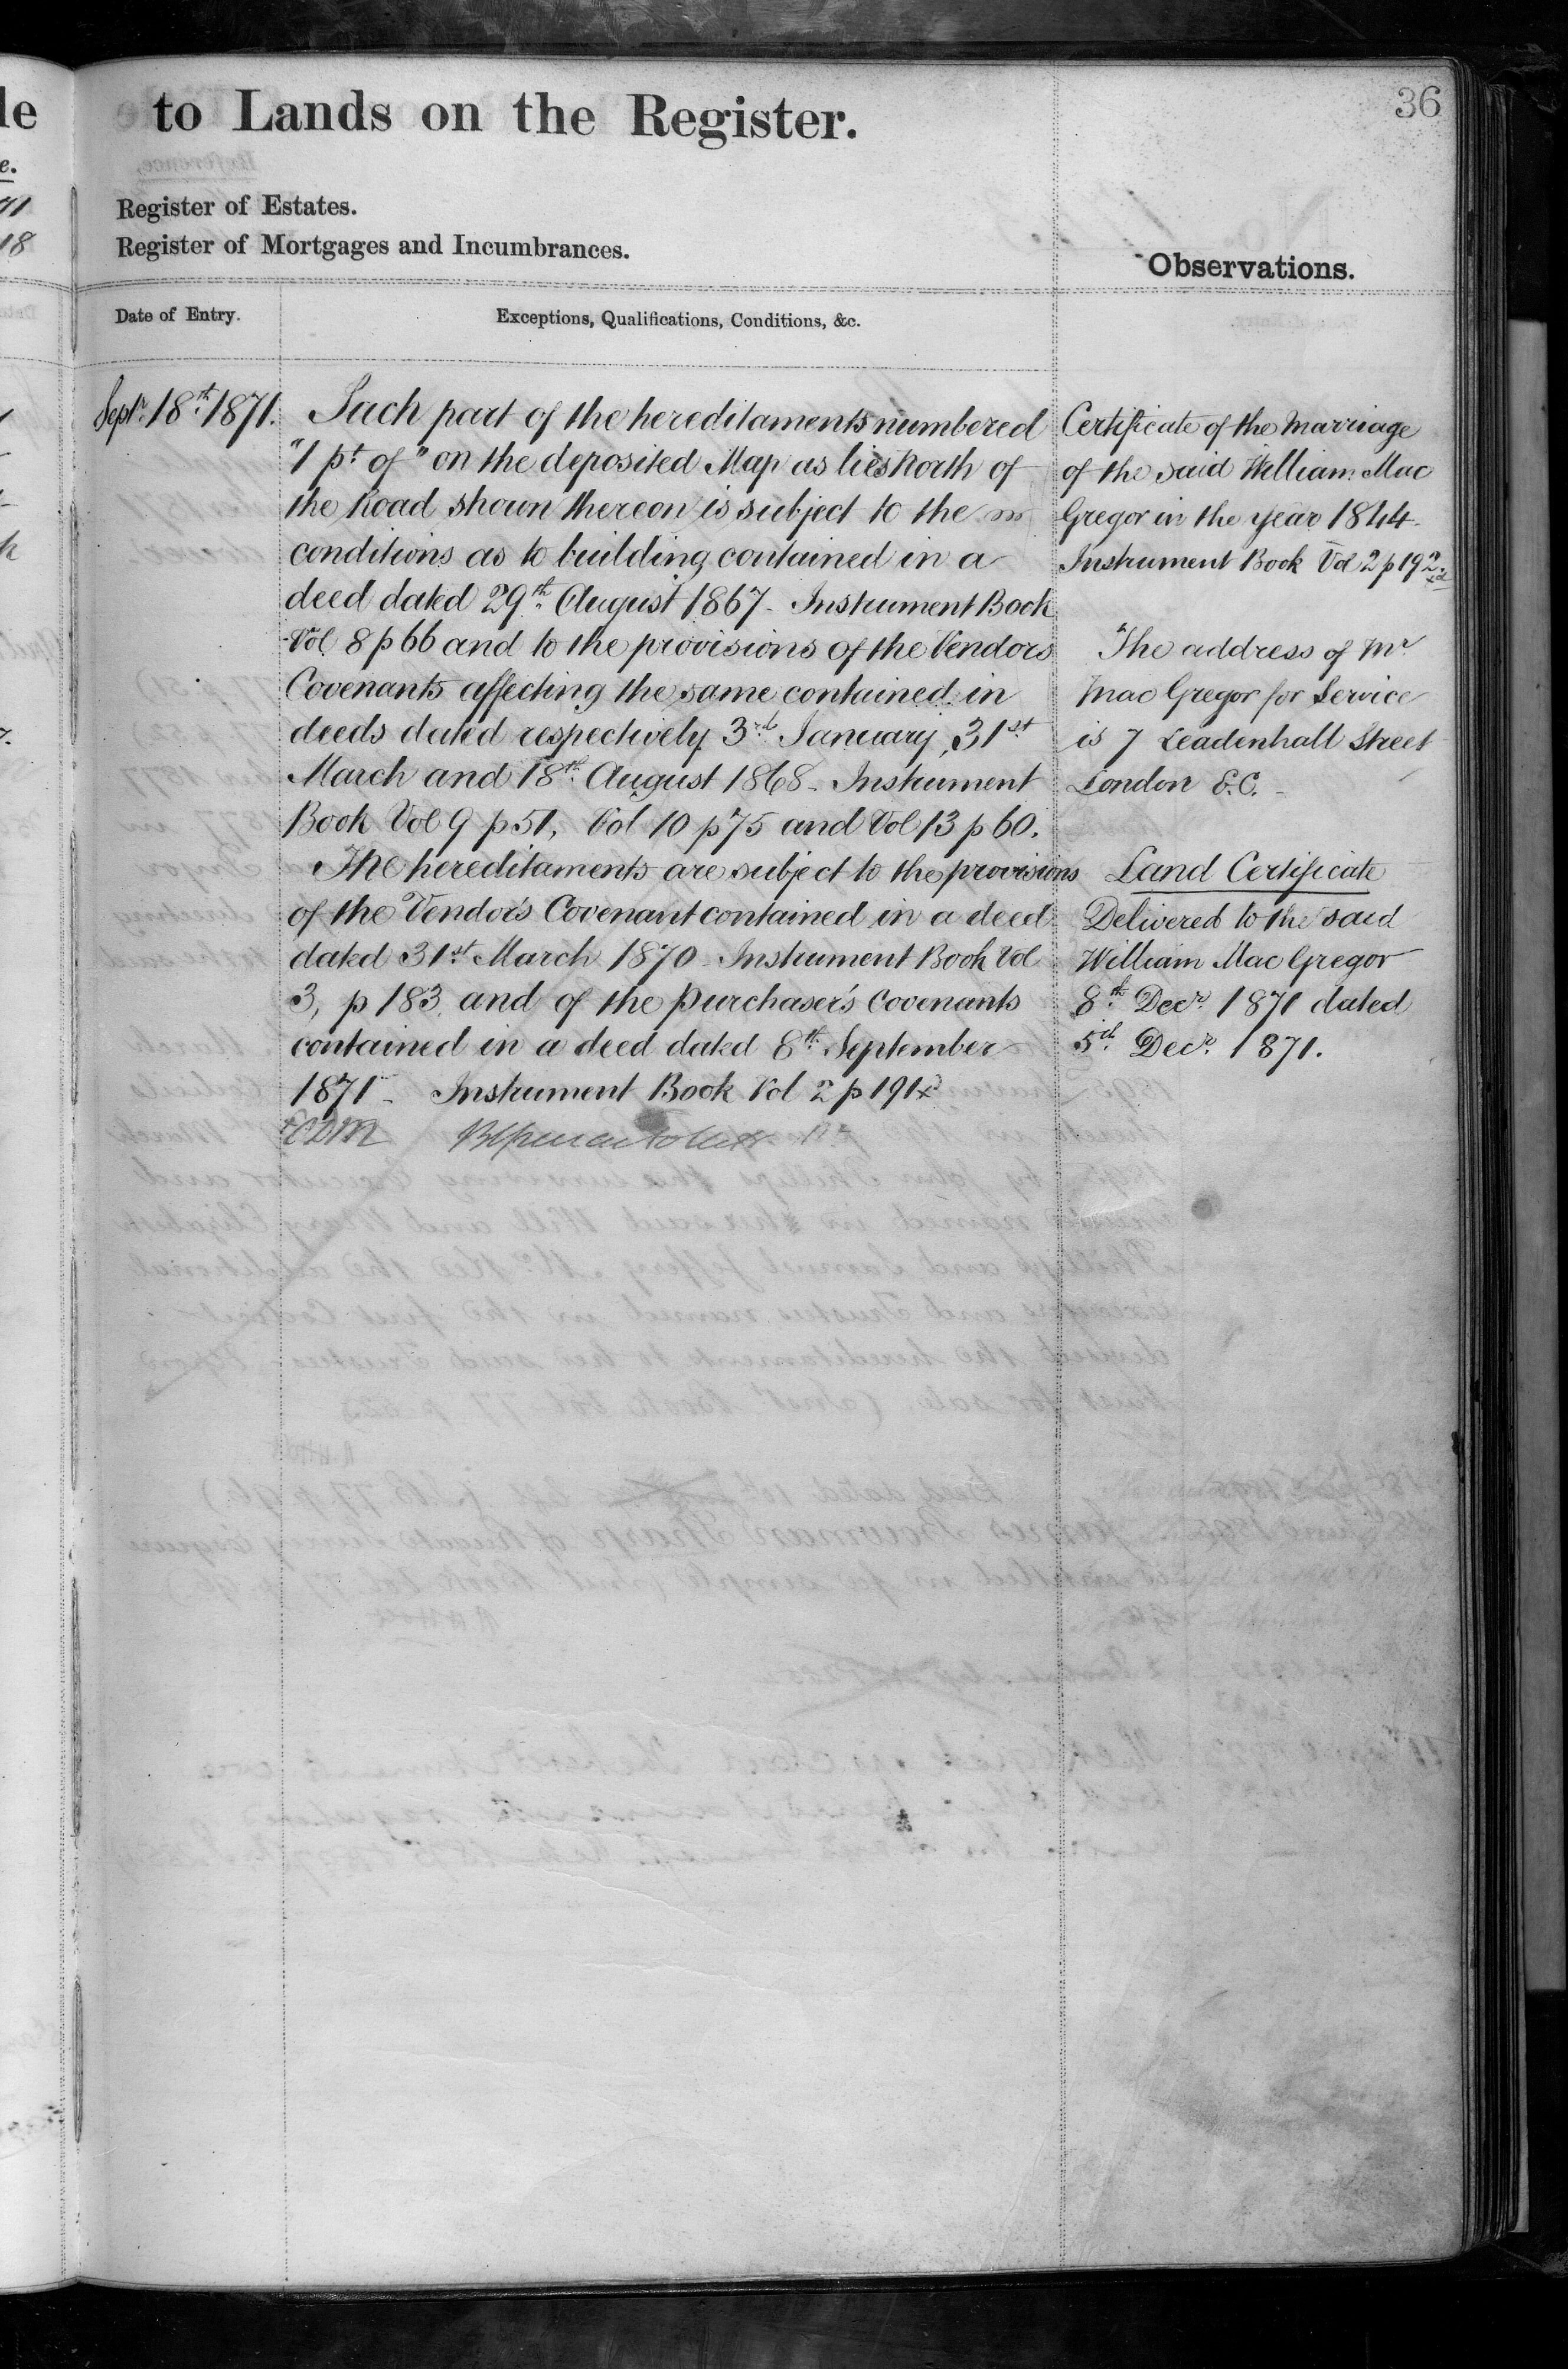 36
to Lands on the Register.
Register of Estates.
Register of Mortgages and Incumbrances.
Observations.
Date of Entry.
Exceptions, Qualifications, Conditions, &c.
Septr. 18th. 1871.
Such part of the hereditaments numbered
"1 pt of" on the deposited Map as lies North of
the Road shown thereon is subject to the
conditions as to building contained in a
deed dated 29th. August 1867 - Instrument Book
Vol 8 p 66 and to the provisions of the Vendors
Covenants affecting the same contained in
deeds dated respectively 3rd. January, 31st
March and 18th. August 1868 - Instrument
Book Vol 9 p 51, Vol 10 p 75 and Vol 13 p 60.
The hereditaments are subject to the provisions
of the Vendor's Covenant contained in a deed
dated 31st March 1870 - Instrument Book Vol
3, p 183, and of the Purchaser's Covenants
contained in a deed dated 8th. September
1871 - Instrument Book Vol 2 p 191
Certificate of the Marriage
of the said William Mac
Gregor in the year 1844 -
Instrument Book Vol 2 p 192.
The address of Mr.
Mac Gregor for Service
is 7 Leadenhall Street
London E.C. -
Land Certificate
Delivered to the said
William Mac Gregor
8th. Decr. 1871 dated
5th. Decr. 1871.